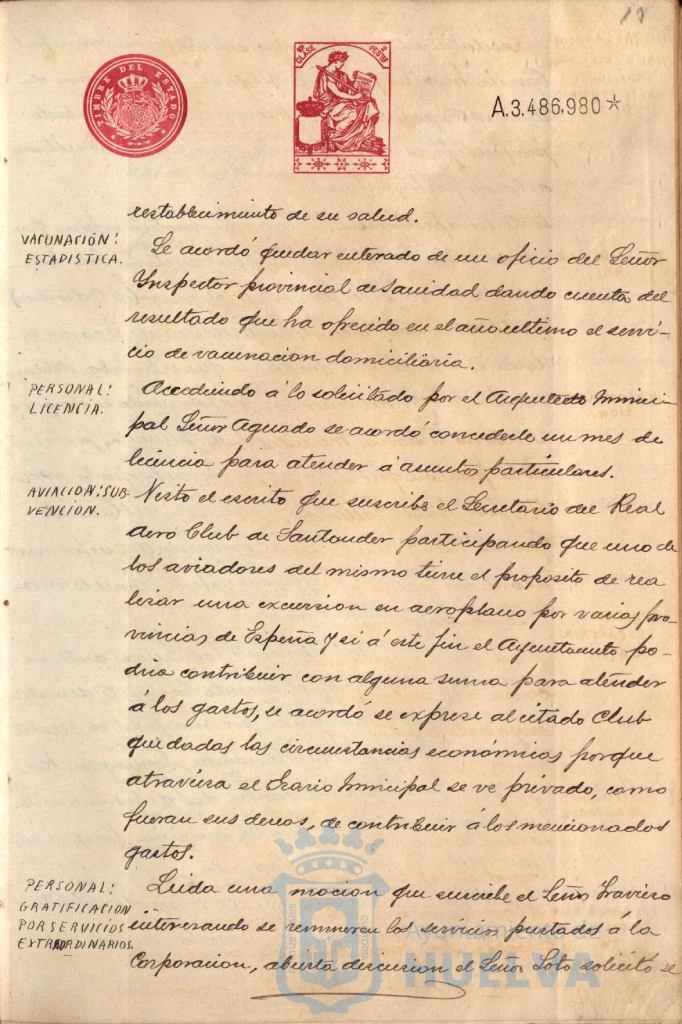 19
TIMBRE DEL ESTADO
1ª CLASE 2 PESTAS
A.3.486,980*
restablecimiento de su salud.
VACUNACIÓN:
ESTADISTICA.
Se acordó quedar enterado de un oficio del Señor
Inspector provincial de Sanidad dando cuenta del
resultado que ha ofrecido en el año ultimo el servi-
cio de vacunacion domiciliaria.
PERSONAL:
LICENCIA.
Accediendo á lo solicitado por el Arquitecto Munici-
pal Señor Aguado se acordó concederle un mes de
licencia para atender á asuntos particulares.
AVIACION: SUB-
VENCIÓN.
Visto el escrito que suscribe el Secretario del Real
Aero Club de Santander participando que uno de
los aviadores del mismo tiene el proposito de rea
lizar una excursion en aeroplano por varias pro-
vincias de España y si á este fin el Ayuntamiento po-
dria contribuir con alguna suma para atender
á los gastos, se acordó se exprese al citado Club
que dadas las circunstancias económicas porque
atraviesa el Erario Municipal se ve privado, como
fueran sus deseos, de contribuir á los mencionados
gastos.
PERSONAL:
GRATIFICACION
POR SERVICIOS
EXTRAORDINARIOS.
Leida una mocion que suscribe el Señor Travieso
interesando se remuneren los servicios prestados á la
Corporacion, abierta discusion el Señor Soto solicitó se
Ayuntamiento de
HUELVA